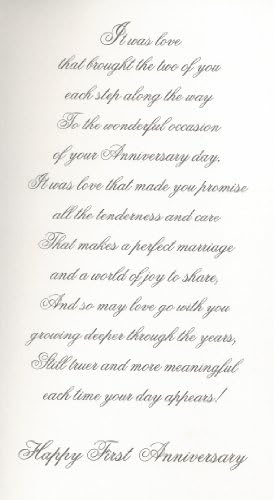 It was love
that brought the two of you
each step along the way
To the wonderful occasion
of your Anniversary day.
It was love that made you promise
all the tenderness and care
That makes a perfect marriage
and a world of joy to share,
And so may love go with you
growing deeper through the years,
Still truer and more meaningful
each time your day appears!
Happy First Anniversary